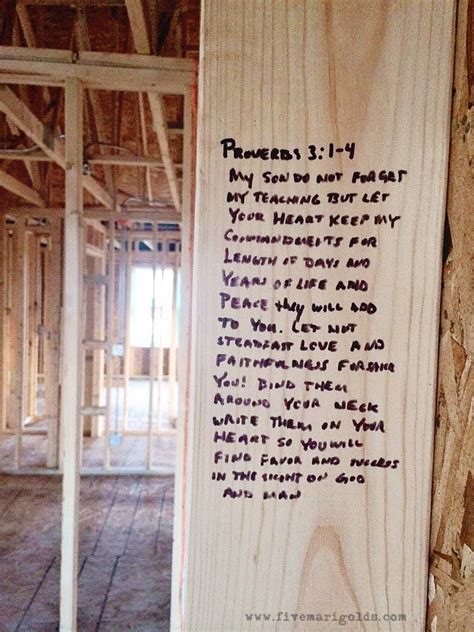 PROVERBS 3:1-4
MY SON DO NOT FORGET
MY TEACHING BUT LET
YOUR HEART KEEP MY
COMMANDMENTS FOR
LENGTH OF DAYS AND
YEARS OF LIFE AND
PEACE they WILL ADD
TO YOU. LET NOT
STEADFAST LOVE AND
FAITHFULNESS FORSAKE
YOU! BIND THEM
AROUND YOUR NECK
WRITE THEM ON YOUR
HEART SO YOU WILL
FIND FAVOR AND SUCCESS
IN THE SIGHT ON GOD
AND MAN
www.fivemarigolds.com